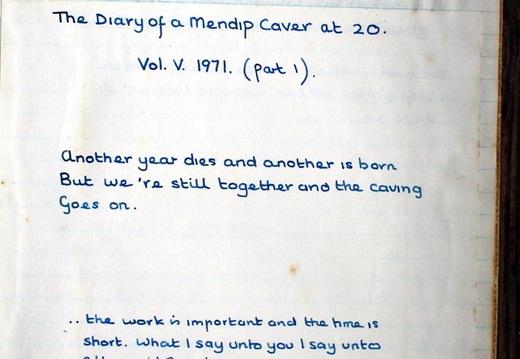 The Diary of a Mendip Caver at 20.
Vol. V. 1971. (part 1).
Another year dies and another is born
But we're still together and the caving
Goes on.
.. the work is important and the time is
short. What I say unto you I say unto